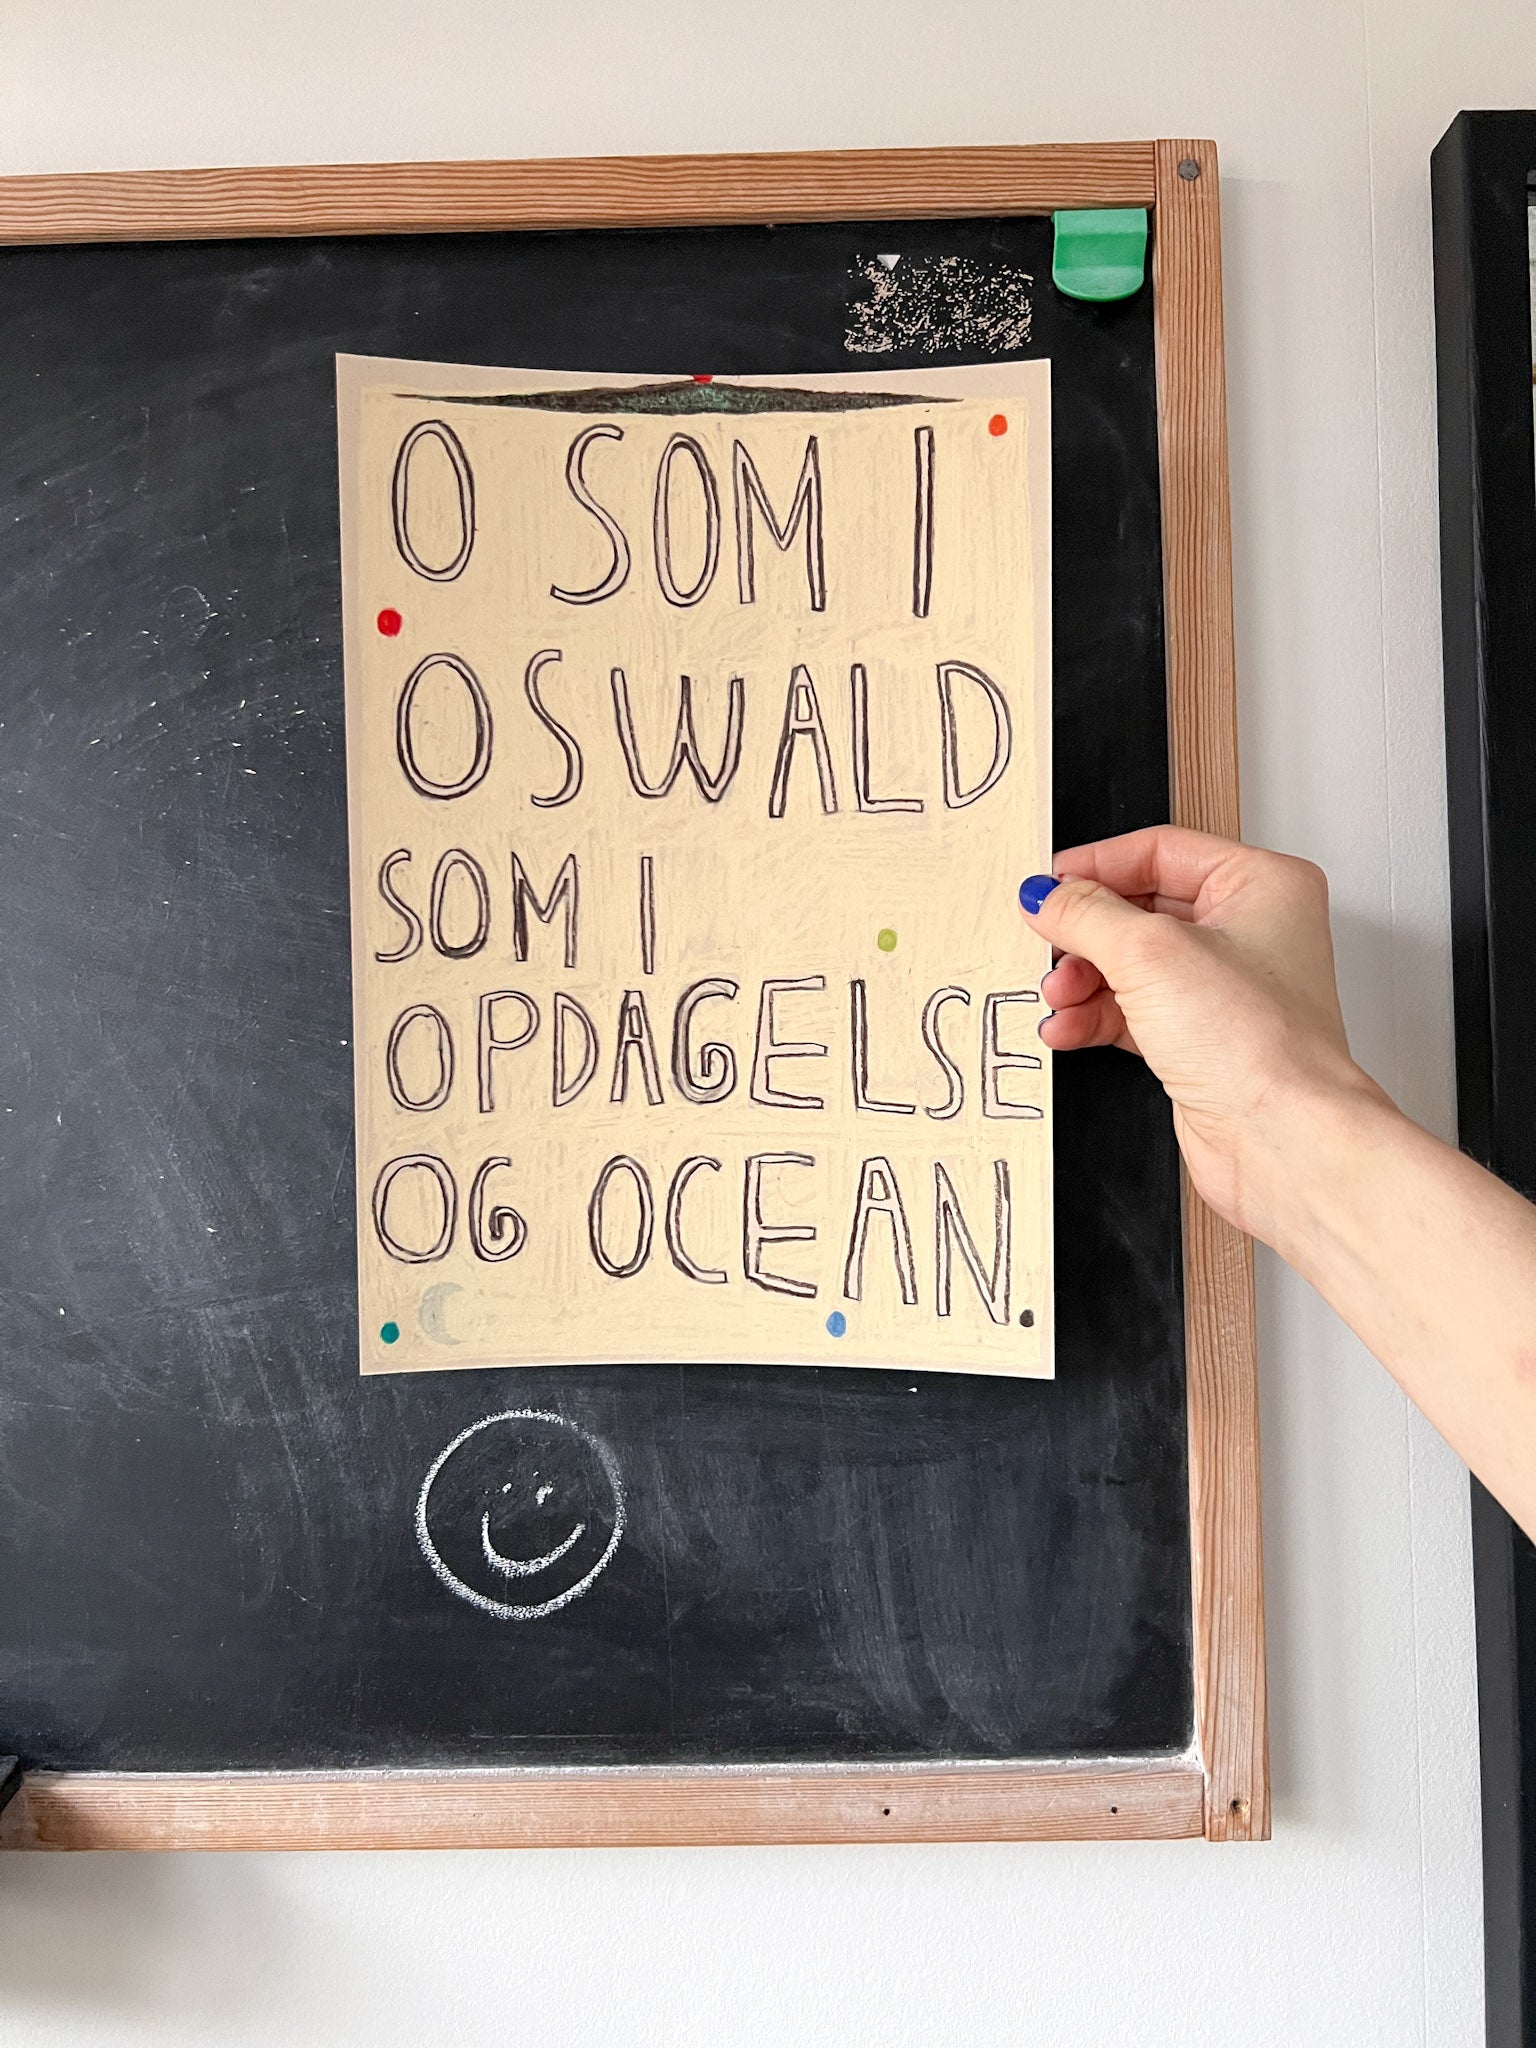 O SOM I
OSWALD
SOM I
OPDAGELSE
OG OCEAN.